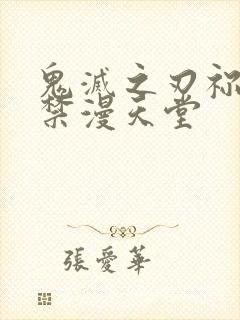 鬼滅之刃祢
禁漫天堂
張愛華